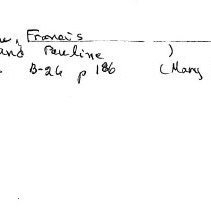 Francis
and Pauline )
B-26 p 186 (Mary